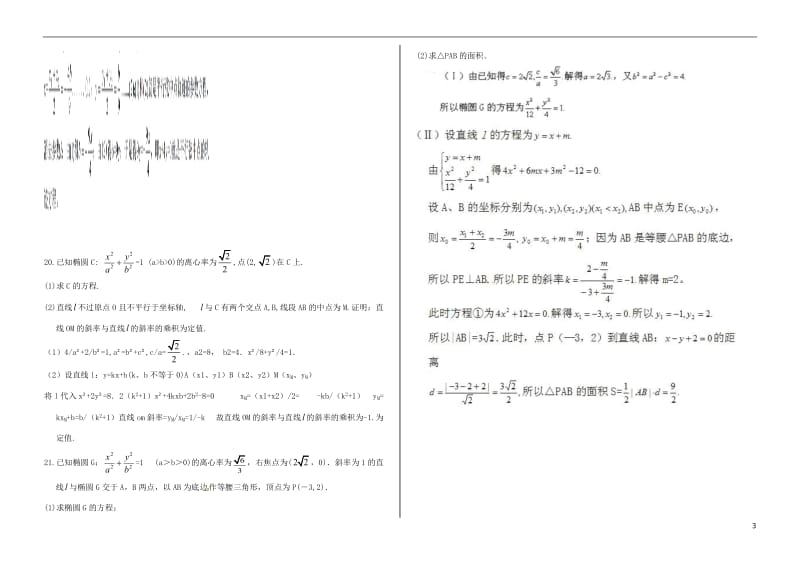 20.已知椭圆 C: x²/a²+y²/b²=1 (a>b>0)的离心率为√2/2,点(2,√2)在 C 上.
(1)求 C 的方程.
(2)直线 l 不过原点 O 且不平行于坐标轴, l 与 C 有两个交点 A,B,线段 AB 的中点为 M.证明:直
线 OM 的斜率与直线 l 的斜率的乘积为定值.
(1)4/a²+2/b²=1,a²=b²+c²,c/a=√2/2.,a2=8, b2=4. x²/8+y²/4=1.
(2)设直线 l:y=kx+b(k、b 不等于 0)A(x1、y1)B(x2、y2)M(xM、yM)
将 l 代入 x²+2y²=8、2(k²+1)x²+4kxb+2b²-8=0 xM=(x1+x2)/2= -kb/(k²+1) yM=
kxM+b=b/(k²+1)直线 om 斜率=yM/xM=1/-k 故直线 OM 的斜率与直线 l 的斜率的乘积为-1.为
定值.
21.已知椭圆 G: x²/a²+y²/b²=1 (a>b>0)的离心率为√6/3,右焦点为(2√2,0).斜率为 1 的直
线 l 与椭圆 G 交于 A,B 两点,以 AB 为底边作等腰三角形,顶点为 P(-3,2).
(1)求椭圆 G 的方程;
(2)求△PAB 的面积.
(Ⅰ)由已知得c=2√2,c/a=√6/3.解得a=2√3,又b²=a²-c²=4.
所以椭圆 G 的方程为x²/12+y²/4=1.
(Ⅱ)设直线 l 的方程为y=x+m.
由{y=x+m x²/12+y²/4=1 得4x²+6mx+3m²-12=0.
设 A、B 的坐标分别为(x₁,y₁),(x₂,y₂)(x₁<x₂),AB 中点为 E(x₀,y₀),
则x₀=(x₁+x₂)/2=-3m/4,y₀=x₀+m=m/4;因为 AB 是等腰△PAB 的底边,
所以 PE⊥AB.所以 PE 的斜率k=(2-m/4)/(-3+3m/4)=-1.解得 m=2。
此时方程①为4x²+12x=0.解得x₁=-3,x₂=0.所以y₁=-1,y₂=2.
所以|AB|=3√2.此时,点 P(—3,2)到直线 AB:x-y+2=0的距
离
d=|-3-2+2|/√2=3√2/2,所以△PAB 的面积 S=1/2|AB|·d=9/2.
3